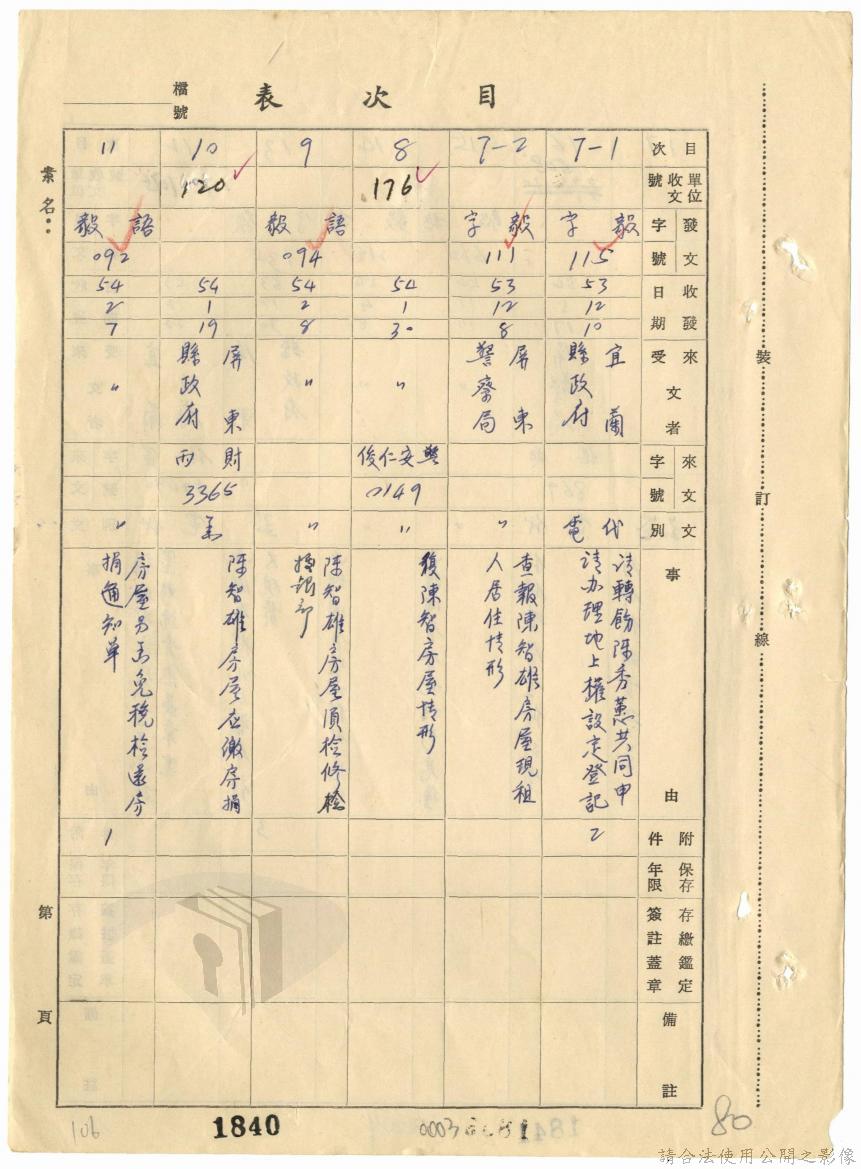 目次表
檔號
案名：
第
頁
目次
單位收文號
發文字號
收發日期
來受文者
來文字號
文別
事由
附件
保存年限
存繳鑑定簽註蓋章
備註
7-1
毅字
115
53
12
10
宜蘭縣政府
代電
请轉飭陈秀蕙共同申
请办理地上權設定登記
2
7-2
毅字
111
53
12
8
屏東警察局
"
查報陳智雄房屋現租
人居住情形
8
176
54
1
30
"
安仁俊
0149
"
復陳智房屋情形
9
語毅
094
54
2
8
"
"
陈智雄房屋須检修
10
120
54
1
19
屏東縣政府
財
3365
陈智雄房屋应缴房捐
11
語毅
092
54
2
7
"
"
房屋另函免税检還房
捐通知单
1
裝
訂
線
106
1840
80
請合法使用公開之影像